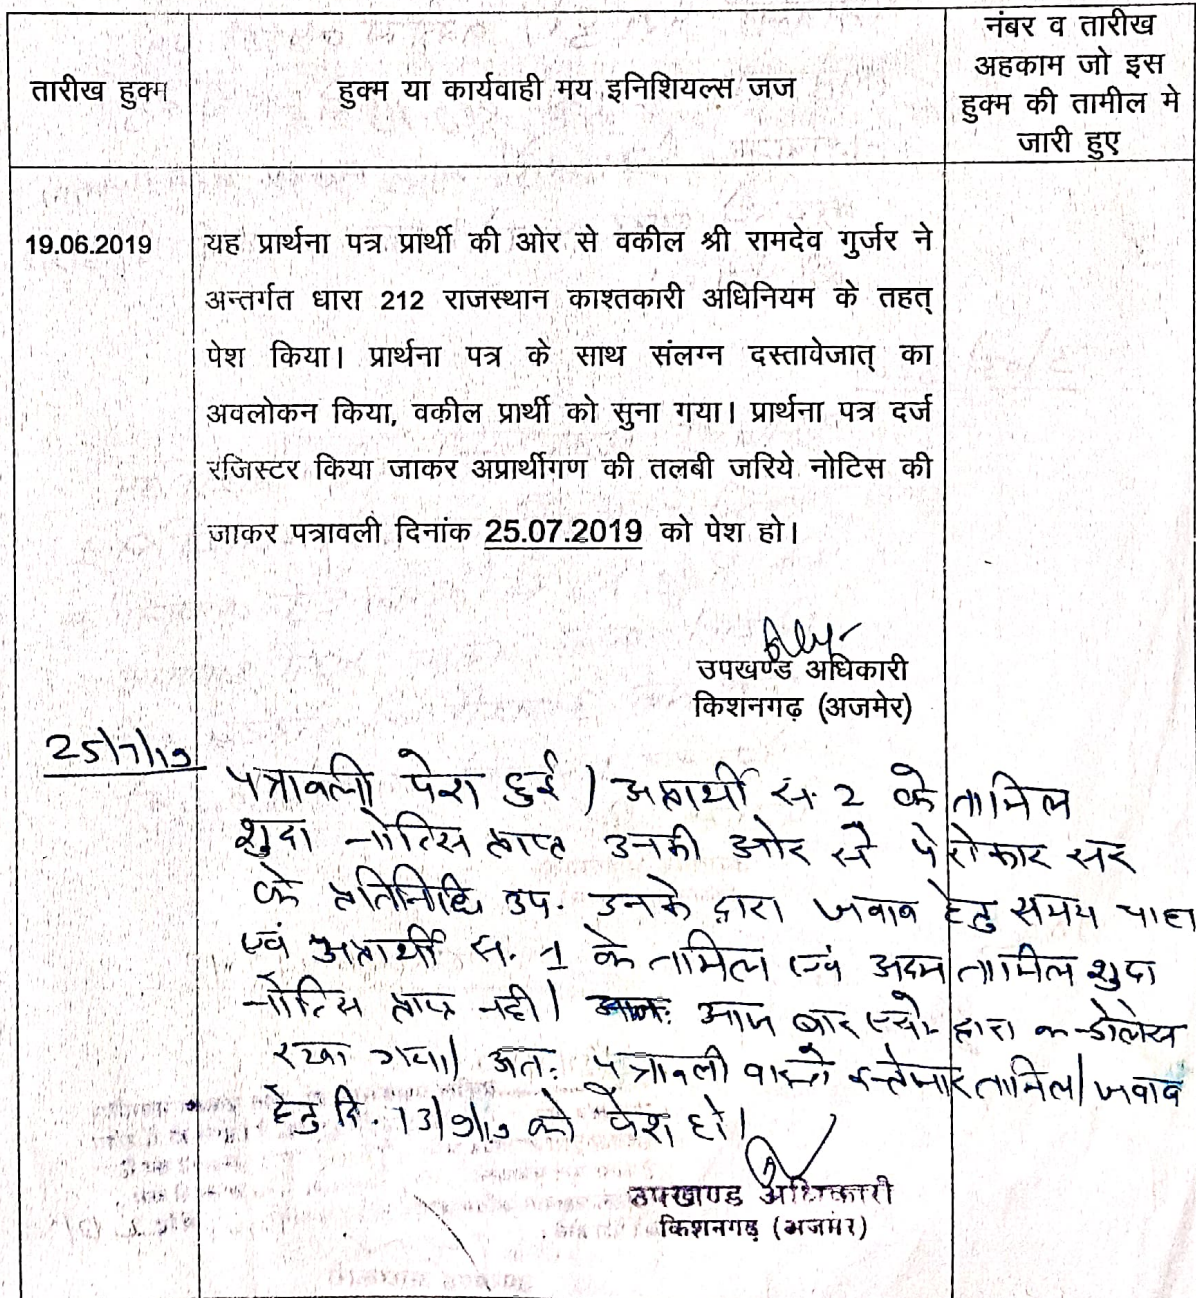 तारीख हुक्म
हुक्म या कार्यवाही मय इनिशियल्स जज
नंबर व तारीख
अहकाम जो इस
हुक्म की तामील मे
जारी हुए
19.06.2019
यह प्रार्थना पत्र प्रार्थी की ओर से वकील श्री रामदेव गुर्जर ने
अन्तर्गत धारा 212 राजस्थान काश्तकारी अधिनियम के तहत्
पेश किया। प्रार्थना पत्र के साथ संलग्न दस्तावेजात् का
अवलोकन किया, वकील प्रार्थी को सुना गया। प्रार्थना पत्र दर्ज
रजिस्टर किया जाकर अप्रार्थीगण की तलबी जरिये नोटिस की
जाकर पत्रावली दिनांक 25.07.2019 को पेश हो।
उपखण्ड अधिकारी
किशनगढ़ (अजमेर)
25/7/19
पत्रावली पेश हुई। अप्रार्थी सं. 2 के तामिल
शुदा नोटिस प्राप्त उनकी ओर से पेरोकार सर
के प्रतिनिधि उप. उनके द्वारा जवाब हेतु समय चाहा
एवं अप्रार्थी सं. 1 के तामिल एवं अदम तामिल शुदा
नोटिस प्राप्त नही। आज बार एसो. द्वारा कन्डोलेंस
रखा गया। अत: पत्रावली वास्ते इन्तेजार तामिल/जवाब
हेतु दि. 13/9/19 को पेश हो।
उपखण्ड अधिकारी
किशनगढ़ (अजमेर)